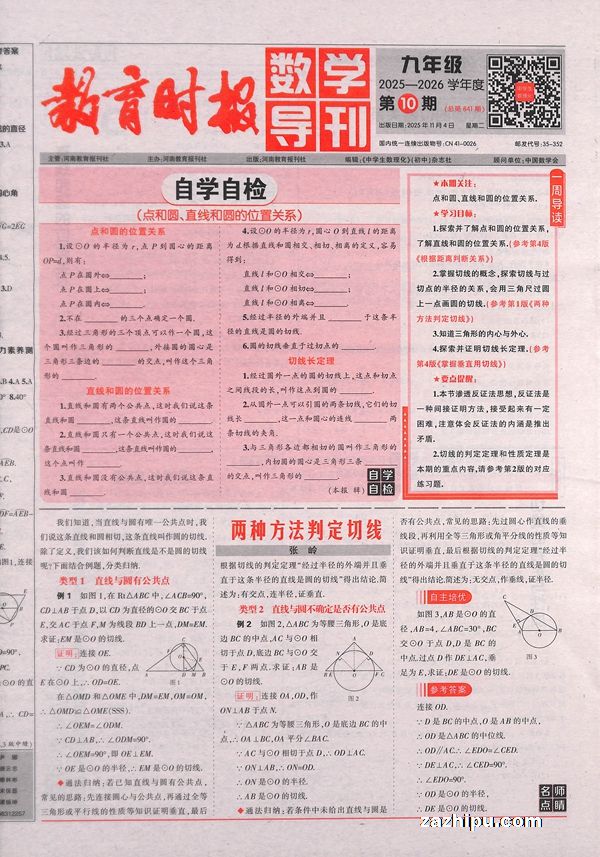 教育时报
数学
导刊
九年级
2025—2026 学年度
第10期 (总第641期)
出版日期:2025年11月4日 星期二
国内统一连续出版物号:CN 41-0026 邮发代号:35-352
主管:河南教育报刊社 主办:河南教育报刊社 出版:河南教育报刊社 编辑:《中学生数理化》(初中)杂志社 顾问单位:中国数学会
自学自检
(点和圆、直线和圆的位置关系)
点和圆的位置关系
1.设⊙O的半径为r,点P到圆心的距离
OP=d,则有:
点P在圆外⇔______;
点P在圆上⇔______;
点P在圆内⇔______.
2.不在______的三个点确定一个圆.
3.经过三角形的三个顶点可以作一个圆,这
个圆叫作三角形的______,外接圆的圆心是
三角形三条边的______的交点,叫作这个三角
形的______.
直线和圆的位置关系
1.直线和圆有两个公共点,这时我们说这条
直线和圆______,这条直线叫作圆的______.
2.直线和圆只有一个公共点,这时我们说这
条直线和圆______,这条直线叫作圆的______,
这个点叫作______.
3.直线和圆没有公共点,这时我们说这条直
线和圆______.
4.设⊙O的半径为r,圆心O到直线l的距离
为d.根据直线和圆相交、相切、相离的定义,容易
得到:
直线l和⊙O相交⇔______;
直线l和⊙O相切⇔______;
直线l和⊙O相离⇔______.
5.经过半径的外端并且______于这条半
径的直线是圆的切线.
6.圆的切线垂直于过切点的______.
切线长定理
1.经过圆外一点的圆的切线上,这点和切点
之间线段的长,叫作这点到圆的______.
2.从圆外一点可以引圆的两条切线,它们的切
线长______,这一点和圆心的连线______两
条切线的夹角.
3.与三角形各边都相切的圆叫作三角形的
______,内切圆的圆心是三角形三条______
的交点,叫作三角形的______.
(本报 辑)
自学
自检
一周导读
★本期关注:
点和圆、直线和圆的位置关系.
★学习目标:
1.探索并了解点和圆的位置关系,
了解直线和圆的位置关系.(参考第4版
《根据距离判断关系》)
2.掌握切线的概念,探索切线与过
切点的半径的关系,会用三角尺过圆
上一点画圆的切线.(参考第1版《两种
方法判定切线》)
3.知道三角形的内心与外心.
4.探索并证明切线长定理.(参考
第4版《掌握垂直用切线》)
★要点提醒:
1.本节渗透反证法思想,反证法是
一种间接证明方法,接受起来有一定
困难,注意体会反证法的内涵是推出
矛盾.
2.切线的判定定理和性质定理是
本期的重点内容,请参考第2版的对应
练习题.
两种方法判定切线
张岭
我们知道,当直线与圆有唯一公共点时,我
们说这条直线和圆相切,这条直线叫作圆的切线.
除了定义,我们该如何判断直线是不是圆的切线
呢?下面结合例题,分类归纳.
类型1 直线与圆有公共点
例1 如图1,在Rt△ABC中,∠ACB=90°,
CD⊥AB于点D,以CD为直径的⊙O交BC于点
E,交AC于点F,M为线段BD上一点,DM=EM.
求证:EM是⊙O的切线.
证明:连接OE.
∵CD为⊙O的直径,点
E在⊙O上,∴OD=OE.
图1
在△OMD和△OME中,DM=EM,OM=OM,
∴△OMD≌△OME(SSS).
∴∠OEM=∠ODM.
∵CD⊥AB,∴∠ODM=90°.
∴∠OEM=90°,即OE⊥EM.
∵OE是⊙O的半径,∴EM是⊙O的切线.
◆通法归纳:若已知直线与圆有公共点,
常见的思路:先连接圆心与公共点,再通过全等
三角形或平行线的性质等知识证明垂直,最后
根据切线的判定定理“经过半径的外端并且垂
直于这条半径的直线是圆的切线”得出结论,简
述为:有交点,连半径,证垂直.
类型2 直线与圆不确定是否有公共点
例2 如图2,△ABC为等腰三角形,O是底
边BC的中点,AC与⊙O相
切于点D,底边BC与⊙O交
于E,F两点.求证:AB是
⊙O的切线.
图2
证明:连接OA,OD,作
ON⊥AB于点N.
∵△ABC为等腰三角形,O是底边BC的中
点,∴OA⊥BC,OA平分∠BAC.
∵AC与⊙O相切于点D,∴OD⊥AC.
∵ON⊥AB,∴ON=OD.
∴ON是⊙O的半径.
∴AB是⊙O的切线.
◆通法归纳:若条件中未给出直线与圆是
否有公共点,常见的思路:先过圆心作直线的垂
线段,再利用全等三角形或角平分线的性质等知
识证明垂直,最后根据切线的判定定理“经过半
径的外端并且垂直于这条半径的直线是圆的切
线”得出结论,简述为:无交点,作垂线,证半径.
自主培优
如图3,AB是⊙O的直
径,AB=4,∠ABC=30°,BC
交⊙O于点D,D是BC的
中点.过点D作DE⊥AC,垂
足为E,求证:DE是⊙O的切线.
图3
参考答案
连接OD.
∵D是BC的中点,O是AB的中点,
∴OD是△ABC的中位线.
∴OD∥AC.∴∠EDO=∠CED.
∵DE⊥AC,∴∠CED=90°.
∴∠EDO=90°.
∵OD是⊙O的半径,
∴DE是⊙O的切线.
名师
点睛
zazhipu.com